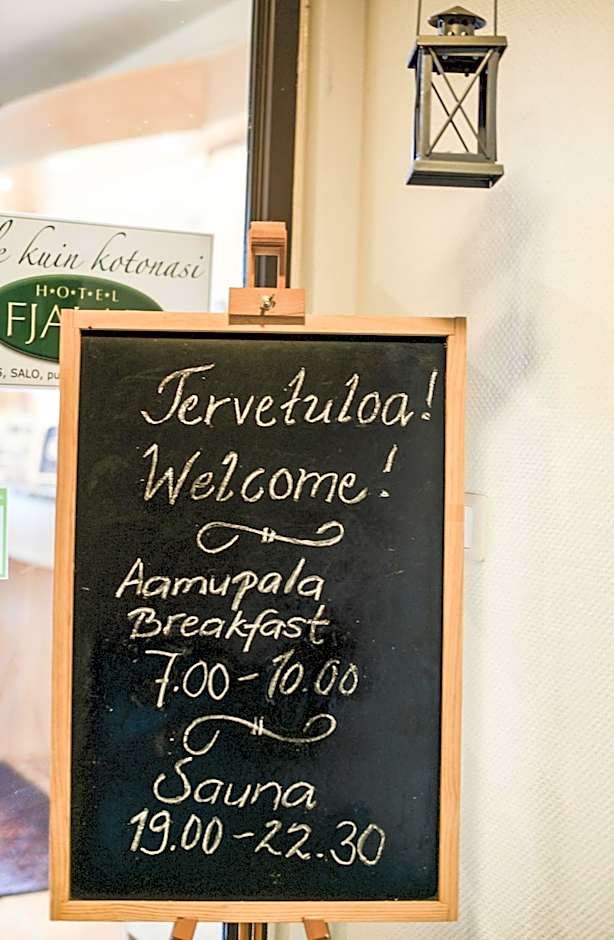 kuin kotonasi
H★O★T★E★L
SALO,
Tervetuloa!
Welcome!
Aamupala
Breakfast
7.00-10.00
Sauna
19.00-22.30